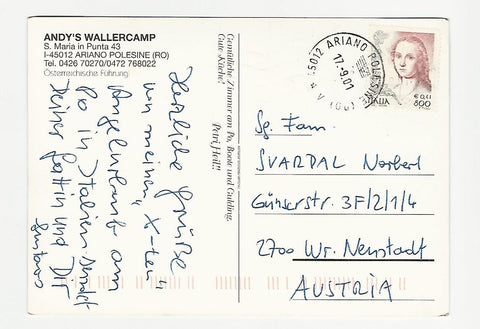 ANDY'S WALLERCAMP
S. Maria in Punta 43
I-45012 ARIANO POLESINE (RO)
Tel. 0426 70270/0472 768022
Österreichische Führung
Gemütliche Zimmer am Po, Boote und Guiding,
Gute Küche!
Petri Heil!!
Herzliche Grüße
von meinem "X-ten"
Angelurlaub am
Po in Italien sendet
Deiner Gattin und Dir
45012 ARIANO POLESINE
17.9.01
(RO)
€ 0,41
ITALIA 800
Sg. Fam.
SVARDAL Norbert
Günserstr. 3F/2/1/4
2700 Wr. Neustadt
AUSTRIA